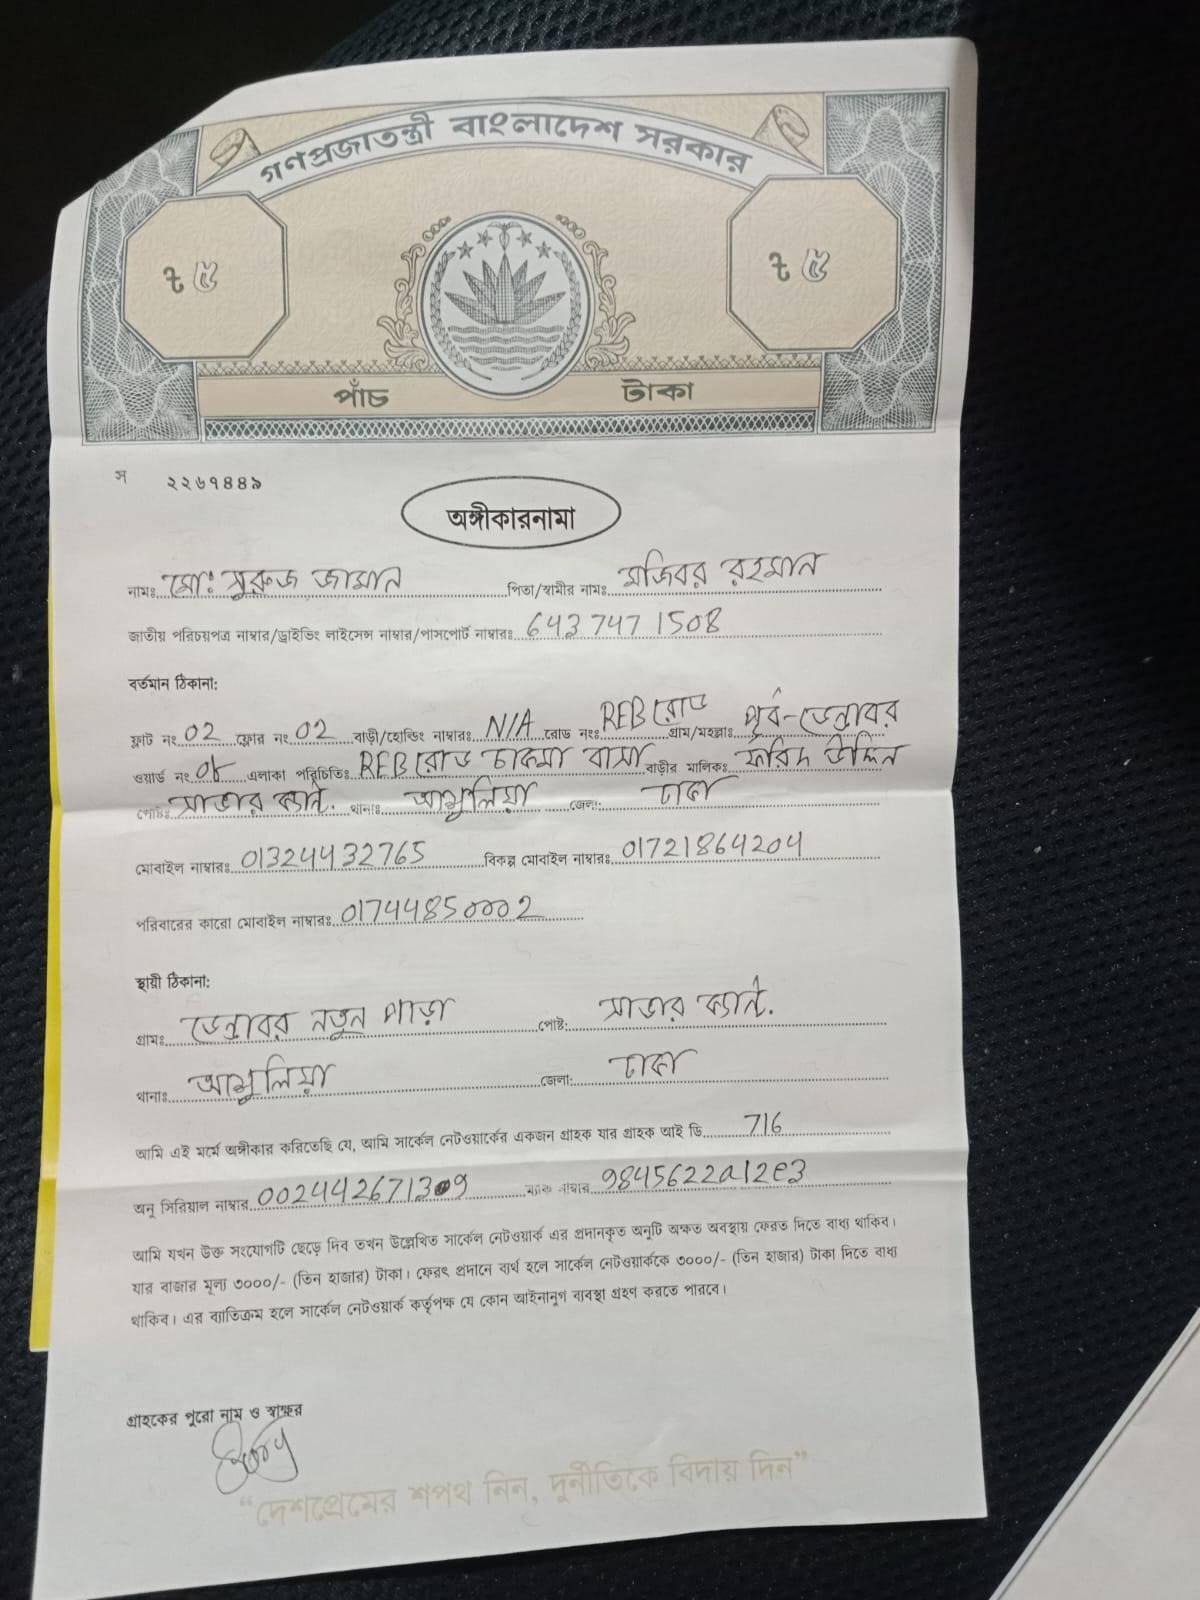 গণপ্রজাতন্ত্রী বাংলাদেশ সরকার
৳ ৫ ৳ ৫
পাঁচ টাকা
স ২২৬৭৪৪৯
অঙ্গীকারনামা
নামঃ মোঃ সুরুজ জামান পিতা/স্বামীর নামঃ মজিবর রহমান
জাতীয় পরিচয়পত্র নাম্বার/ড্রাইভিং লাইসেন্স নাম্বার/পাসপোর্ট নাম্বারঃ 643 747 1508
বর্তমান ঠিকানা:
ফ্লাট নং 02 ফ্লোর নং 02 বাড়ী/হোল্ডিং নাম্বারঃ N/A রোড নংঃ REB রোড গ্রাম/মহল্লাঃ পূর্ব-ডেন্ডাবর
ওয়ার্ড নং 08 এলাকা পরিচিতিঃ REB রোড চাকমা বাসা বাড়ীর মালিকঃ ফরিদ উদ্দিন
পোষ্টঃ সাভার ক্যান্ট. থানাঃ আশুলিয়া জেলা: ঢাকা
মোবাইল নাম্বারঃ 01324432765 বিকল্প মোবাইল নাম্বারঃ 01721864204
পরিবারের কারো মোবাইল নাম্বারঃ 01744850002
স্থায়ী ঠিকানা:
গ্রামঃ ডেন্ডাবর নতুন পাড়া পোষ্ট: সাভার ক্যান্ট.
থানাঃ আশুলিয়া জেলা: ঢাকা
আমি এই মর্মে অঙ্গীকার করিতেছি যে, আমি সার্কেল নেটওয়ার্কের একজন গ্রাহক যার গ্রাহক আই ডি 716
অনু সিরিয়াল নাম্বার 002442671309 ম্যাক নাম্বার 9845622a12e3
আমি যখন উক্ত সংযোগটি ছেড়ে দিব তখন উল্লেখিত সার্কেল নেটওয়ার্ক এর প্রদানকৃত অনুটি অক্ষত অবস্থায় ফেরত দিতে বাধ্য থাকিব।
যার বাজার মূল্য ৩০০০/- (তিন হাজার) টাকা। ফেরৎ প্রদানে ব্যর্থ হলে সার্কেল নেটওয়ার্ককে ৩০০০/- (তিন হাজার) টাকা দিতে বাধ্য
থাকিব। এর ব্যতিক্রম হলে সার্কেল নেটওয়ার্ক কর্তৃপক্ষ যে কোন আইনানুগ ব্যবস্থা গ্রহণ করতে পারবে।
গ্রাহকের পুরো নাম ও স্বাক্ষর
“দেশপ্রেমের শপথ নিন, দুর্নীতিকে বিদায় দিন”